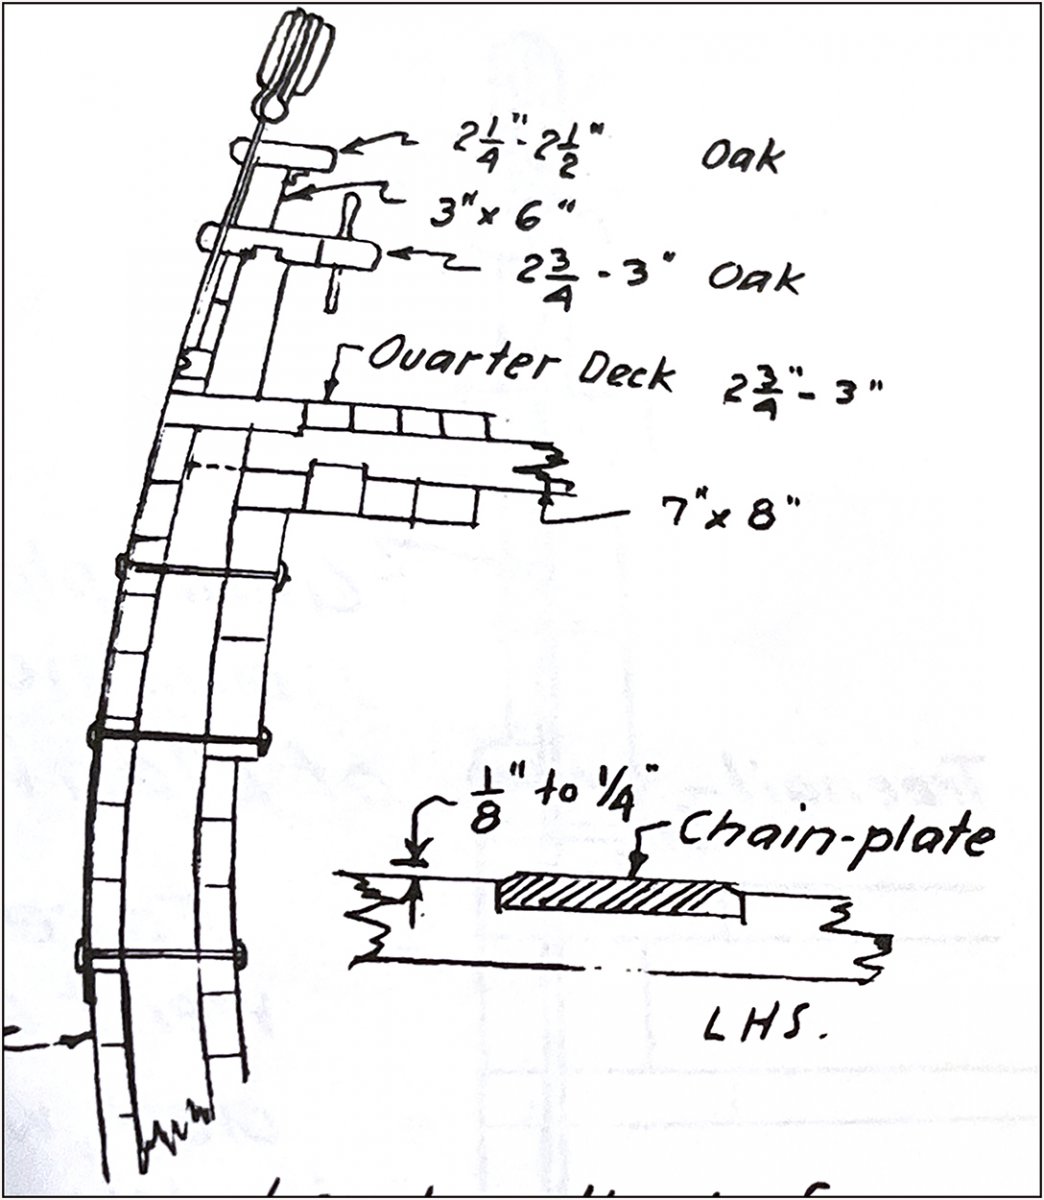 2 1/4" - 2 1/2" Oak
3" x 6"
2 3/4 - 3" Oak
Quarter Deck 2 3/4" - 3"
7" x 8"
1/8" to 1/4"
Chain-plate
LHS.